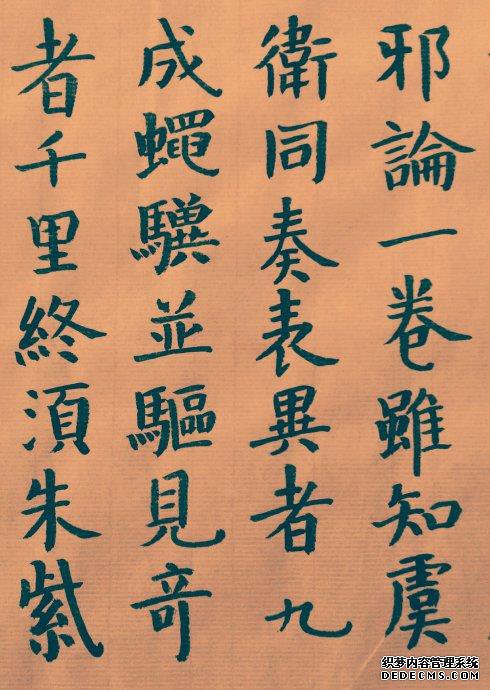 邪論一卷雖知虞
衛同奏表異者九
成蠅驥並驅見竒
者千里終湏朱紫
织梦内容管理系统
DEDECMS.COM